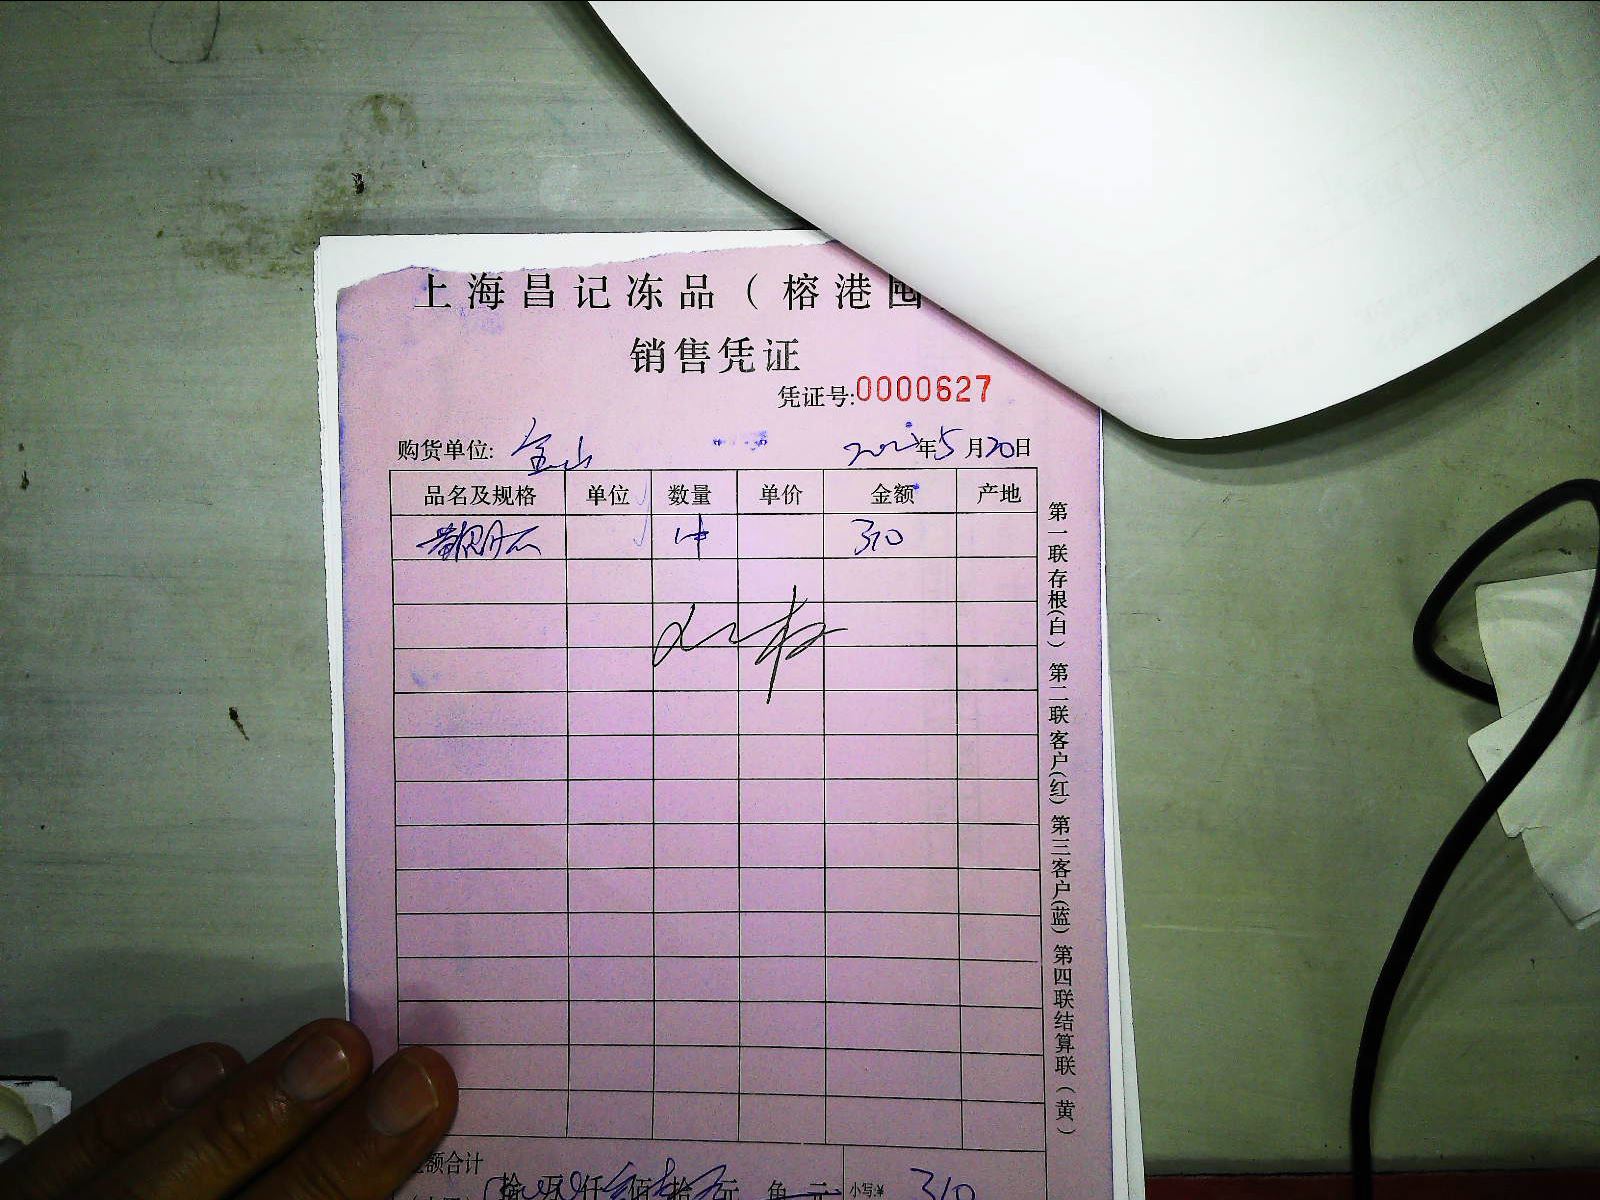 上海昌记冻品（榕港囤
销售凭证
凭证号:0000627
购货单位: 金山 年5月20日
品名及规格 单位 数量 单价 金额 产地
1件 310
第一联存根(白) 第二联客户(红) 第三客户(蓝) 第四联结算联(黄)
金额合计
拾 万 仟 佰 拾 元 角 元 小写:¥ 310